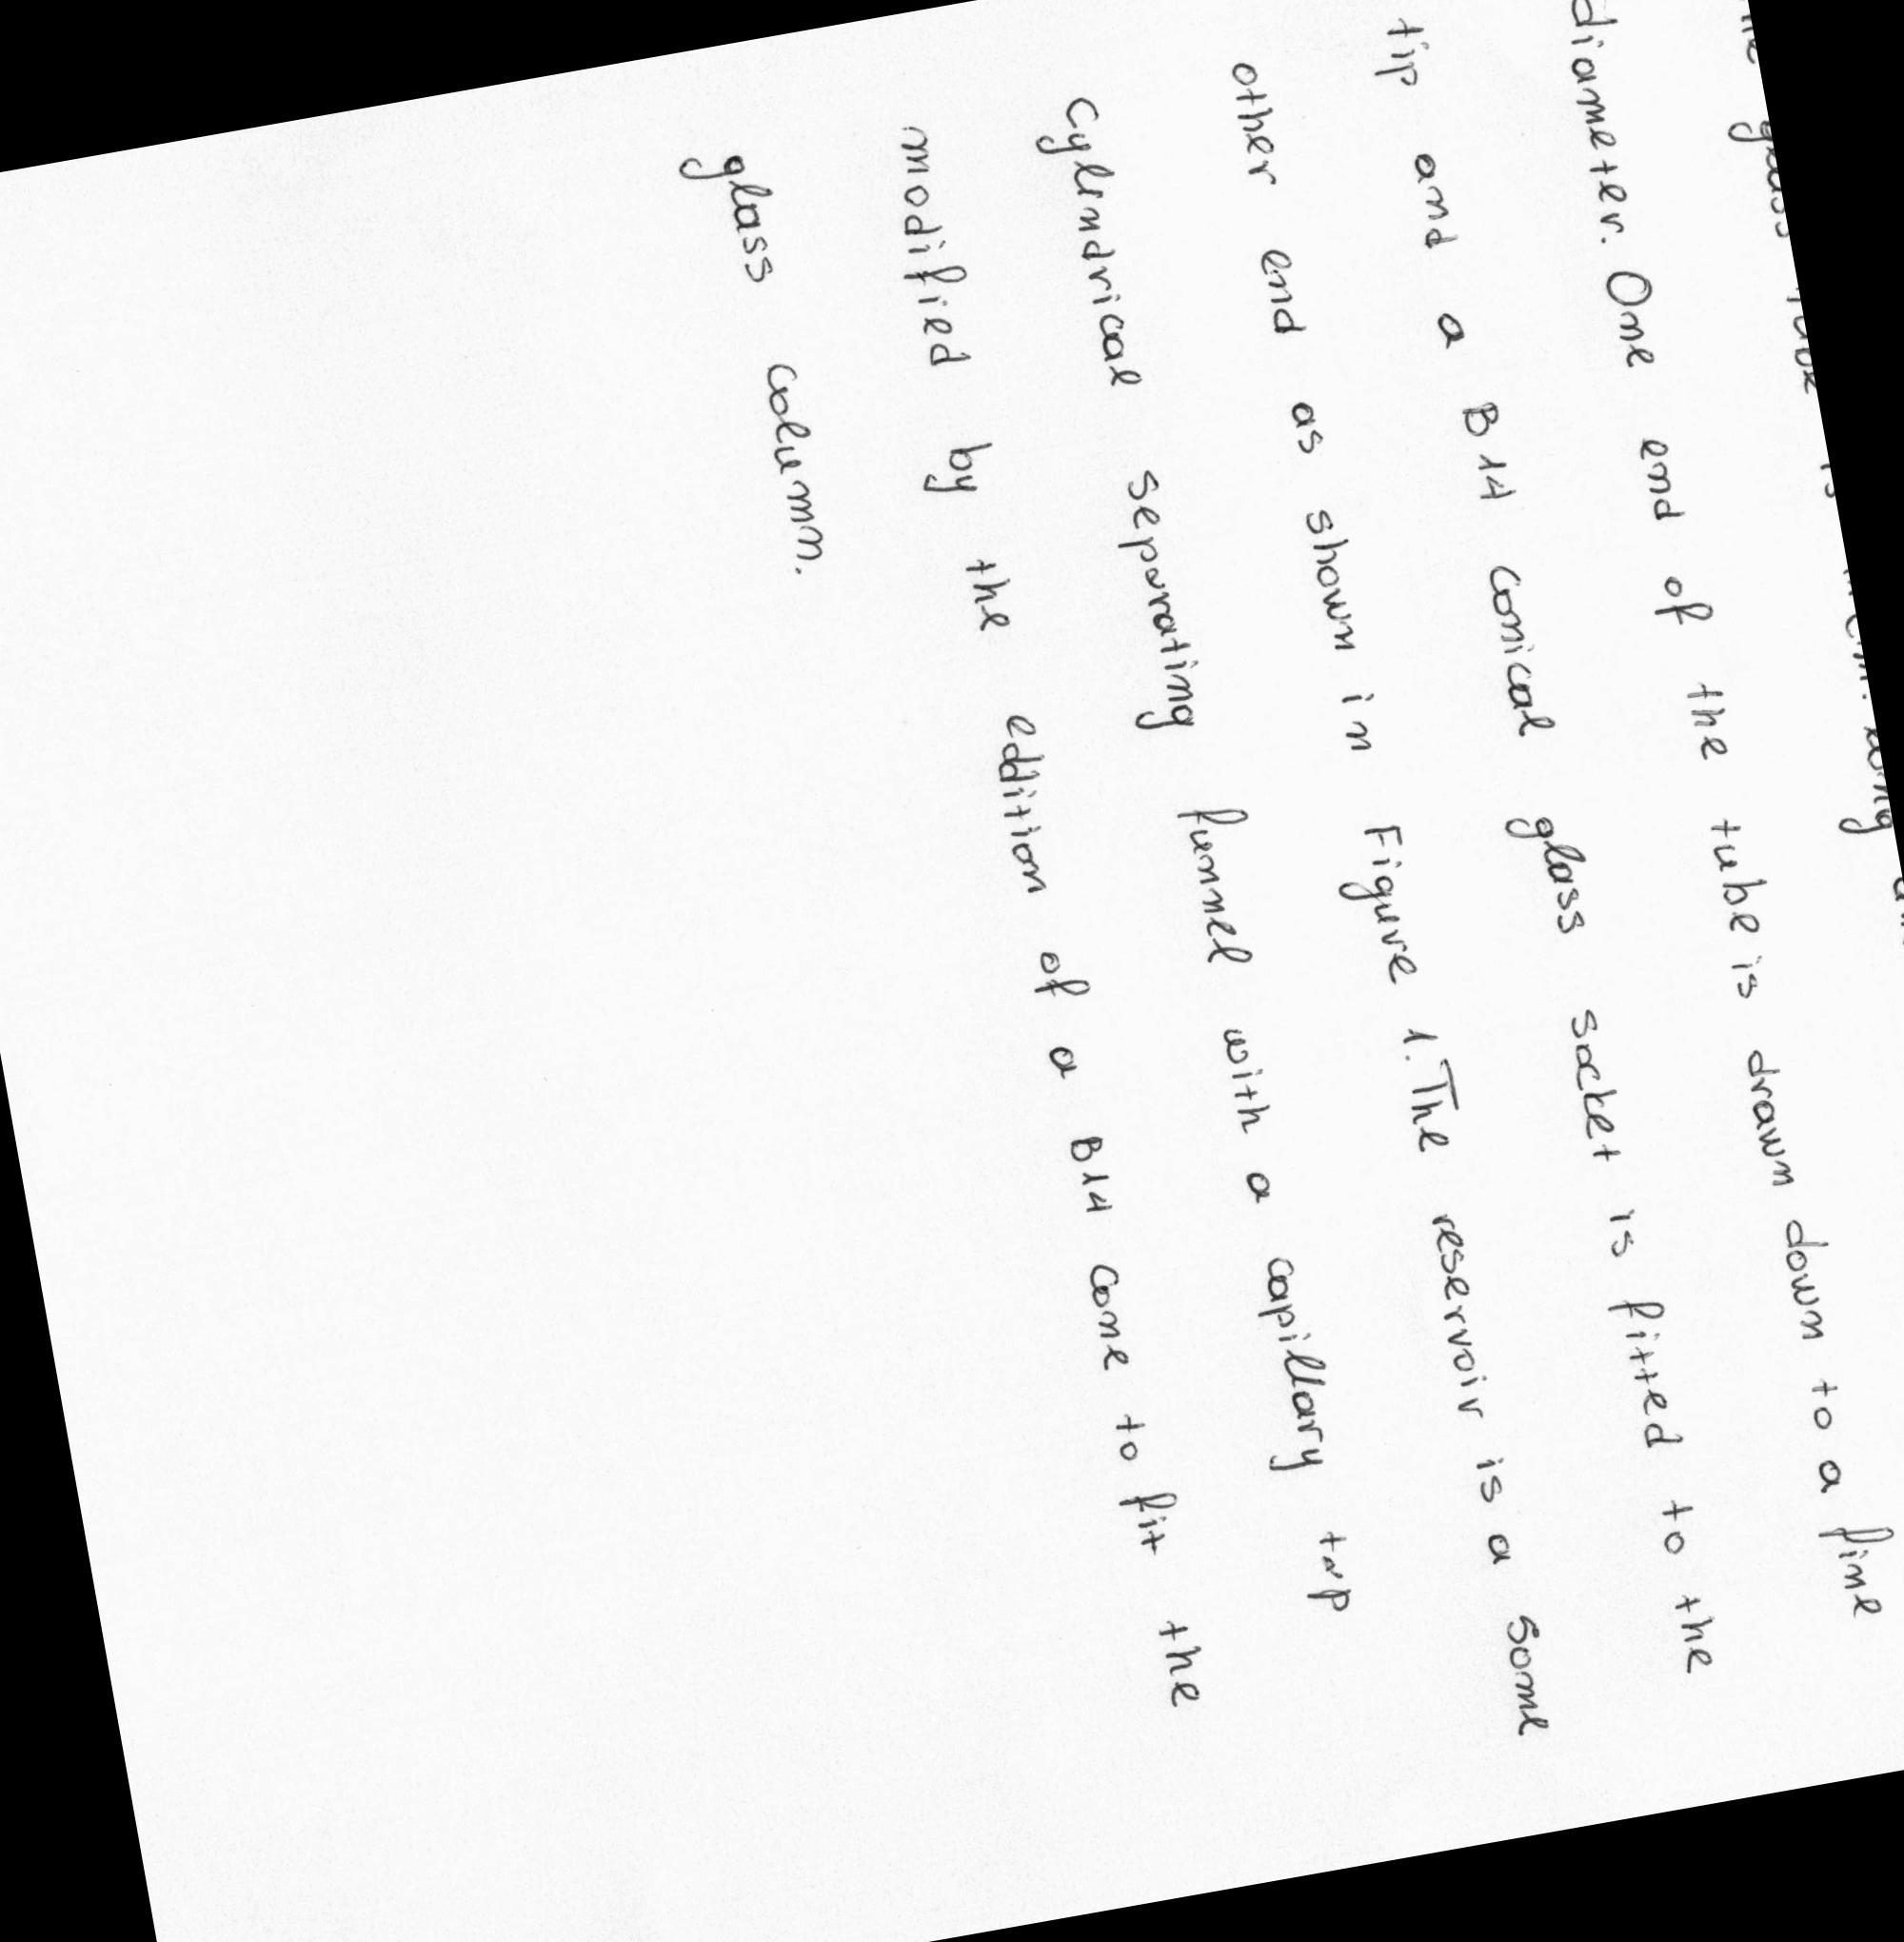 glass
diameter. One end of the tube is drawn down to a fine
tip and a B14 conical glass socket is fitted to the
other end as shown in Figure 1. The reservoir is a some
cylindrical separating funnel with a capillary tap
modified by the eddition of a B14 cone to fit the
glass column.